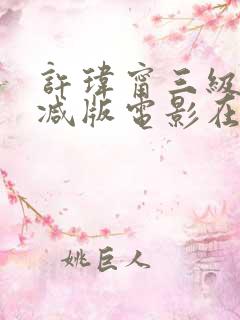 許瑋甯三級
减版電影在
姚巨人